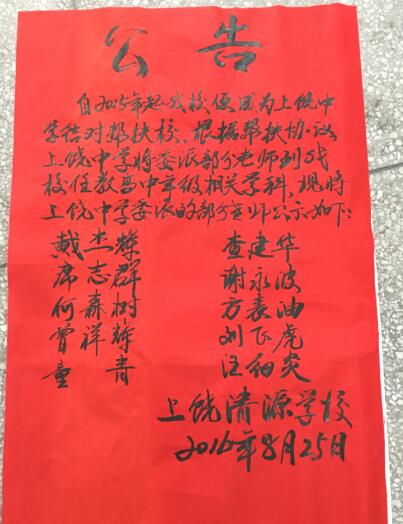 公告
自2015年起我校便因为上饶中
学结对帮扶校。根据帮扶协议
上饶中学将委派部分老师到我
校任教高中年级相关学科,现将
上饶中学委派的部分老师公示如下:
戴杰辉 查建华
席志群 谢永波
何森树 方表油
曾祥辉 刘飞虎
童青 汪细炎
上饶清源学校
2016年8月25日